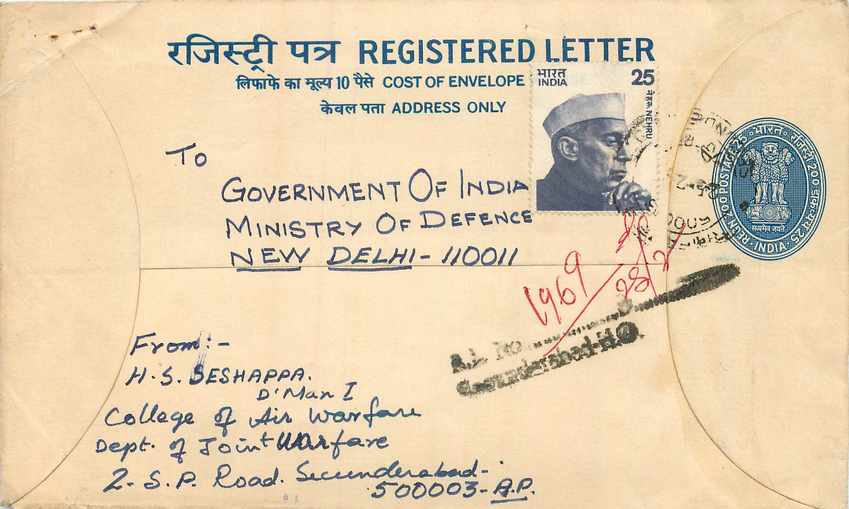 रजिस्ट्री पत्र REGISTERED LETTER
लिफाफे का मूल्य 10 पैसे COST OF ENVELOPE
केवल पता ADDRESS ONLY
भारत 25
INDIA
नेहरू NEHRU
REGN. 200 POSTAGE 25 भारत रजिस्ट्री 200 डाक-व्यय 25 INDIA
सत्यमेव जयते
To
GOVERNMENT OF INDIA
MINISTRY OF DEFENCE
NEW DELHI - 110011
1969
28/2
R.L. No
Secunderabad H.O.
From:-
H.S. SESHAPPA.
D'Man I
College of Air Warfare
Dept. of Joint Warfare
2- S.P. Road. Secunderabad-
500003-A.P.